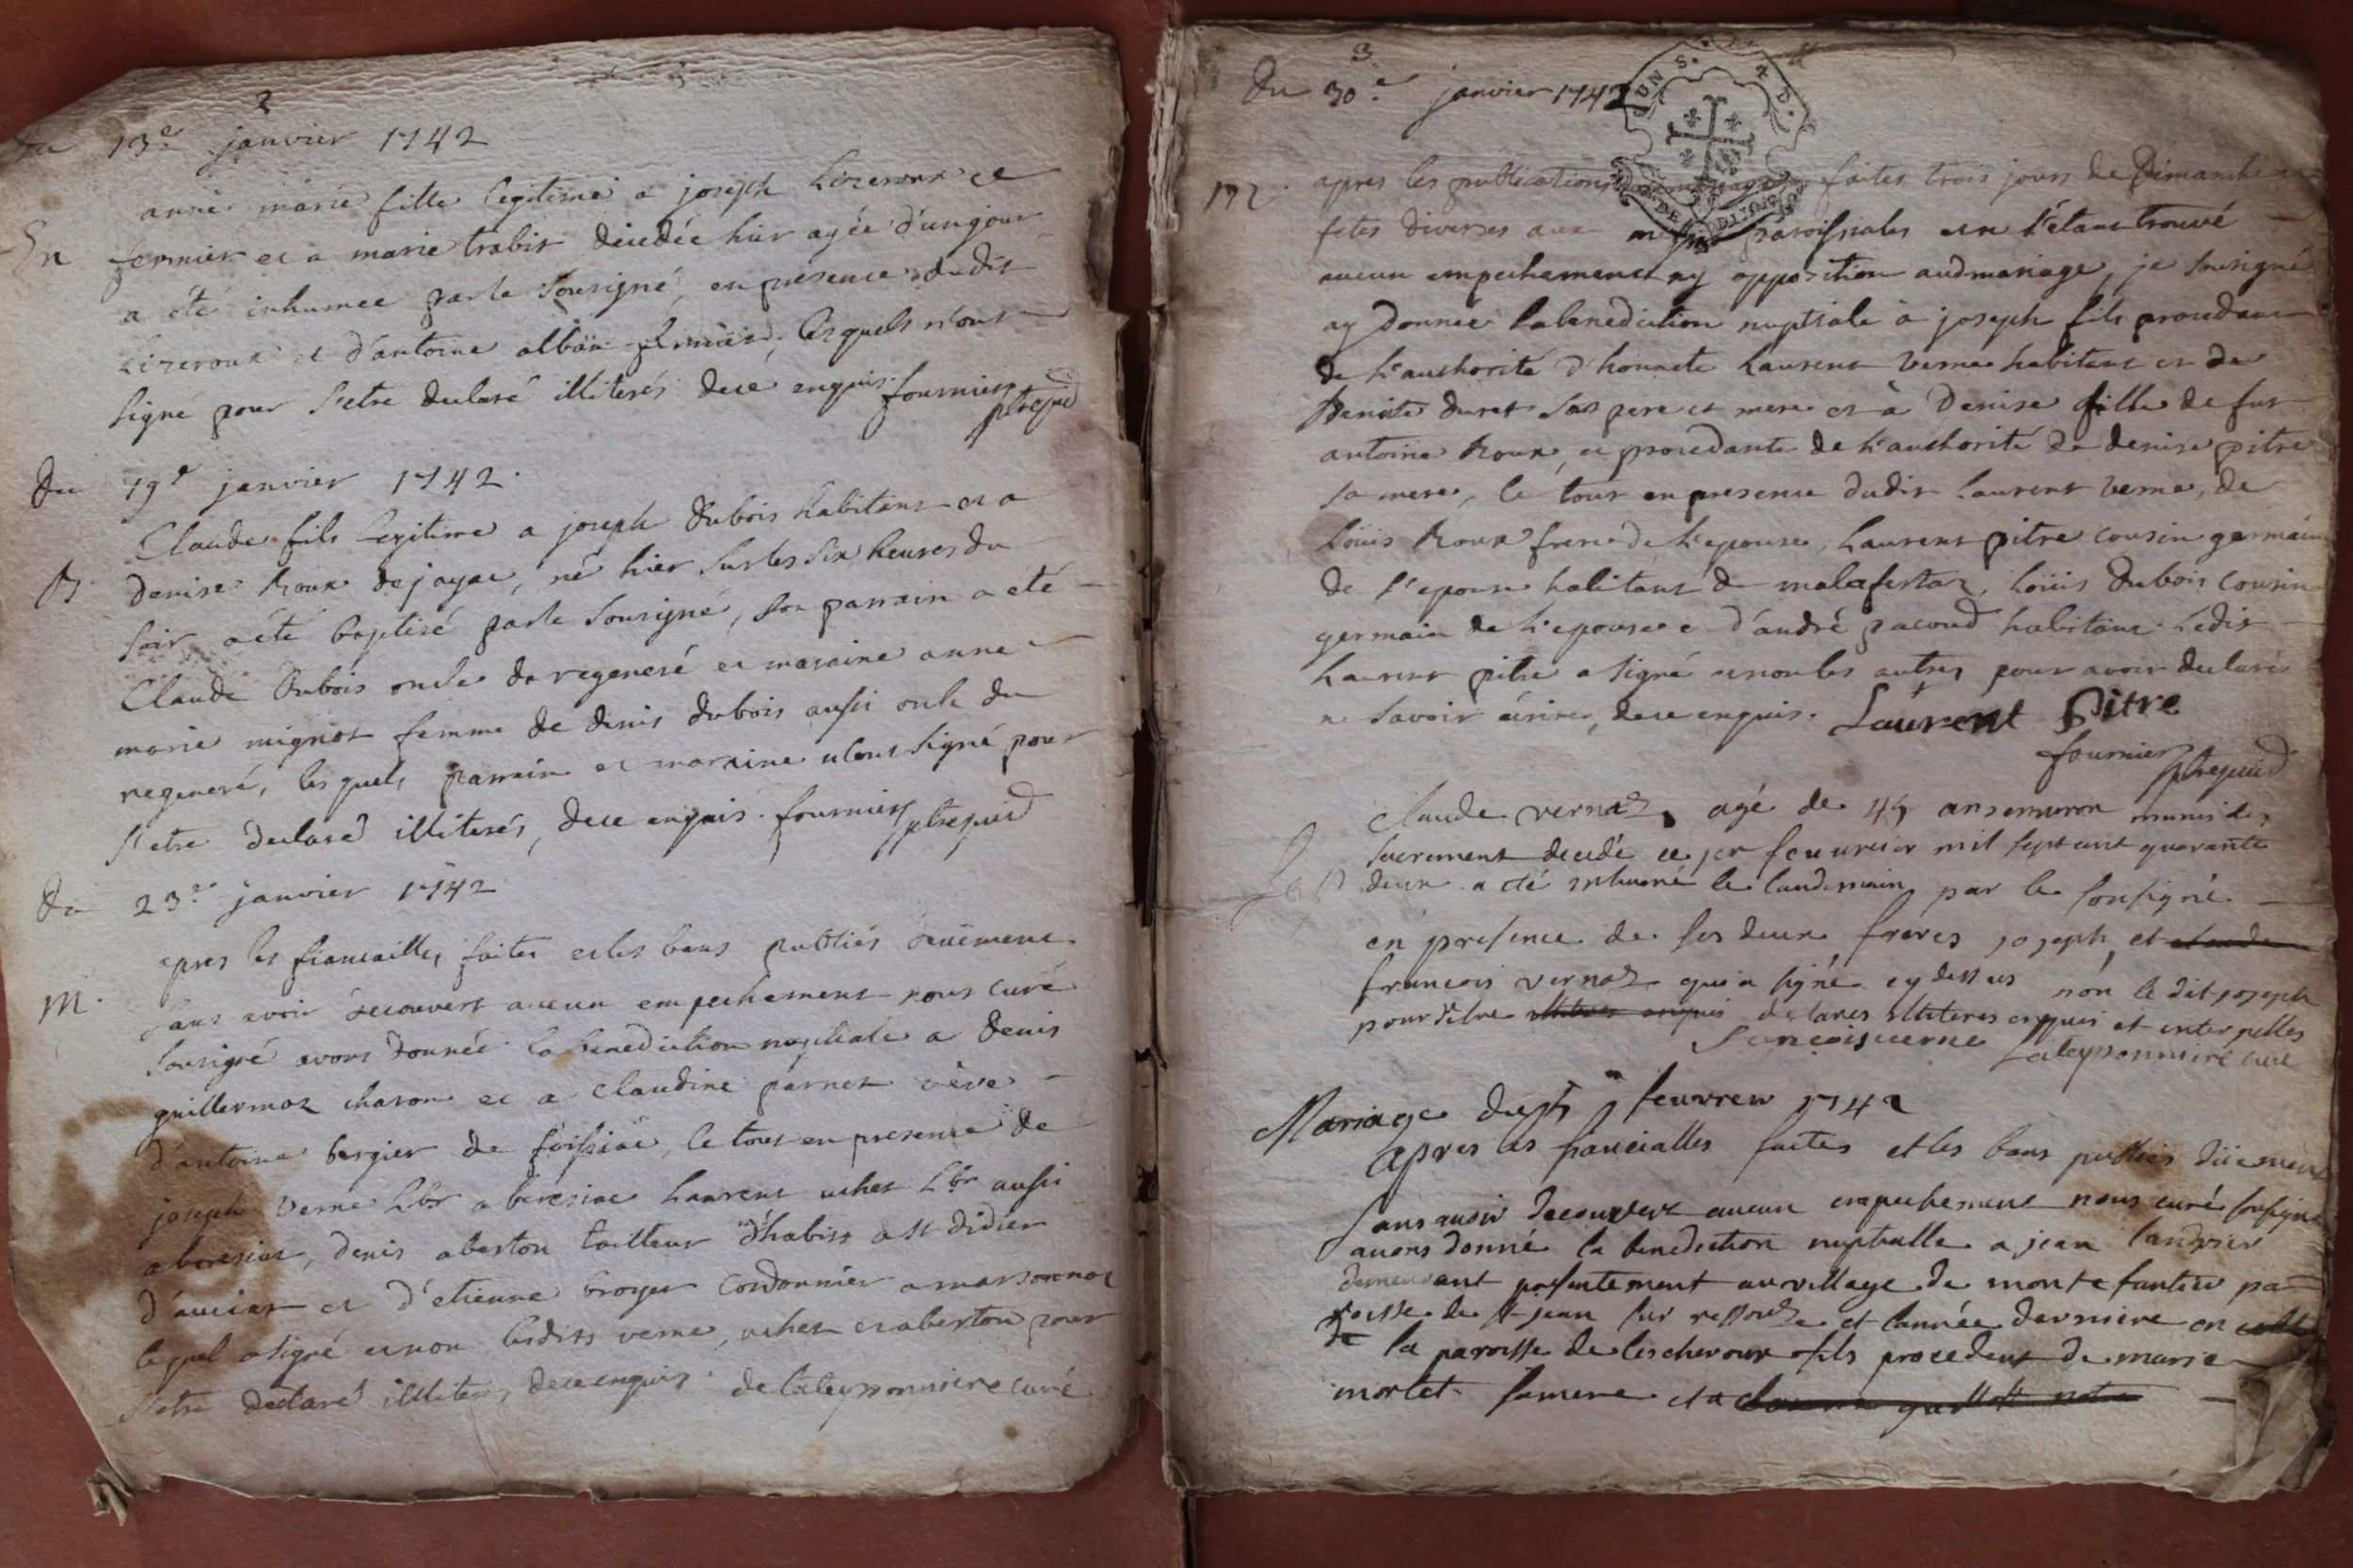 2
du 13e janvier 1742
anne marie fille legitime a joseph Lizeroux ce
En fermier et a marie trabit décédée hier agée d'un jour
a été inhumée par le sousigné, en presence dudit
Lizeroux et d'antoine alban fermier, lesquels n'ont
signé pour s'etre declaré illiterés de ce enquis. fournier ptre
du 19e janvier 1742.
Claude fils legitime a joseph Dubois habitant et a
B. denise Roux de jayac, né hier sur les six heures du
soir a été baptisé par le sousigné, son parrain a été
Claude Dubois oncle du regeneré et maraine anne
marie mignot femme de denis dubois aussi oncle du
regeneré, lesquels parrain et marraine n'ont signé pour
s'etre declaré illiterés, de ce enquis. fournier ptre
Du 23e janvier 1742
apres les fiancailles faites et les bans publiés düement
M. sans avoir decouvert aucun empechement nous curé
sousigné avons donnée la benediction nuptiale a denis
guillermoz charon et a Claudine parnet veve
d'antoine bergier de foissiac, le tout en presence de
joseph verne Lbr a beresiac Laurent uchet Lbr aussi
a beresiat, denis aberton tailleur d'habits a st didier
d'auciat et d'etienne broyer Cordonnier a marsonnaz
lequel a signé et non lesdits verne, uchet et aberton pour
s'etre declaré illiterés, de ce enquis. delateyssonniere curé
3
Du 30e janvier 1742
M. apres les publications faites trois jours de Dimanche
fetes diverses aux messes paroissiales et ne s'etant trouvé
aucun empechement ny opposition aud mariage, je sousigné
ay Donnée la benediction nuptiale à joseph fils procedant
de l'authorité d'honnete Laurent verne habitant et de
Benoite duret ses pere et mere et à Denise fille de fut
antoine Roux, et procedante de l'authorité de denise pitre
sa mere, le tout en presence dudit Laurent verne, de
Loüis Roux frere de l'epouse, Laurent pitre cousin germain
de l'epouse habitant de malafretaz, Loüis Dubois cousin
germain de l'epouse et d'andré pacoud habitant. Ledit
Laurent pitre a signé et non les autres pour avoir declaré
ne savoir écrire, de ce enquis. Laurent Pitre
fournier ptre
Claude vernaz agé de 45 ans environ munis des
sacrement decedé ce 1er feuvrier mil sept cent quarante
deux a eté inhumé le landemain par le sousigné
en presence de ses deux freres joseph et
francois vernaz qui a signé cy dessus non le dit joseph
pour s'etre declares illiteres enquis et interpelles
francois verne Lateyssonniere curé
Mariage du feuvrier 1742
Apres les fiancialles faites et les bans publiés düement
sans auoir decouvert aucun empechement nous curé sousigné
auons donné la benediction nuptialle a jean landrier
demeurant presentement au village de montefantier pa
roisse de st jean sur ressouze et l'année derniere en
la paroisse de lescheroux fils procedent de marie
mortet sa mere et a